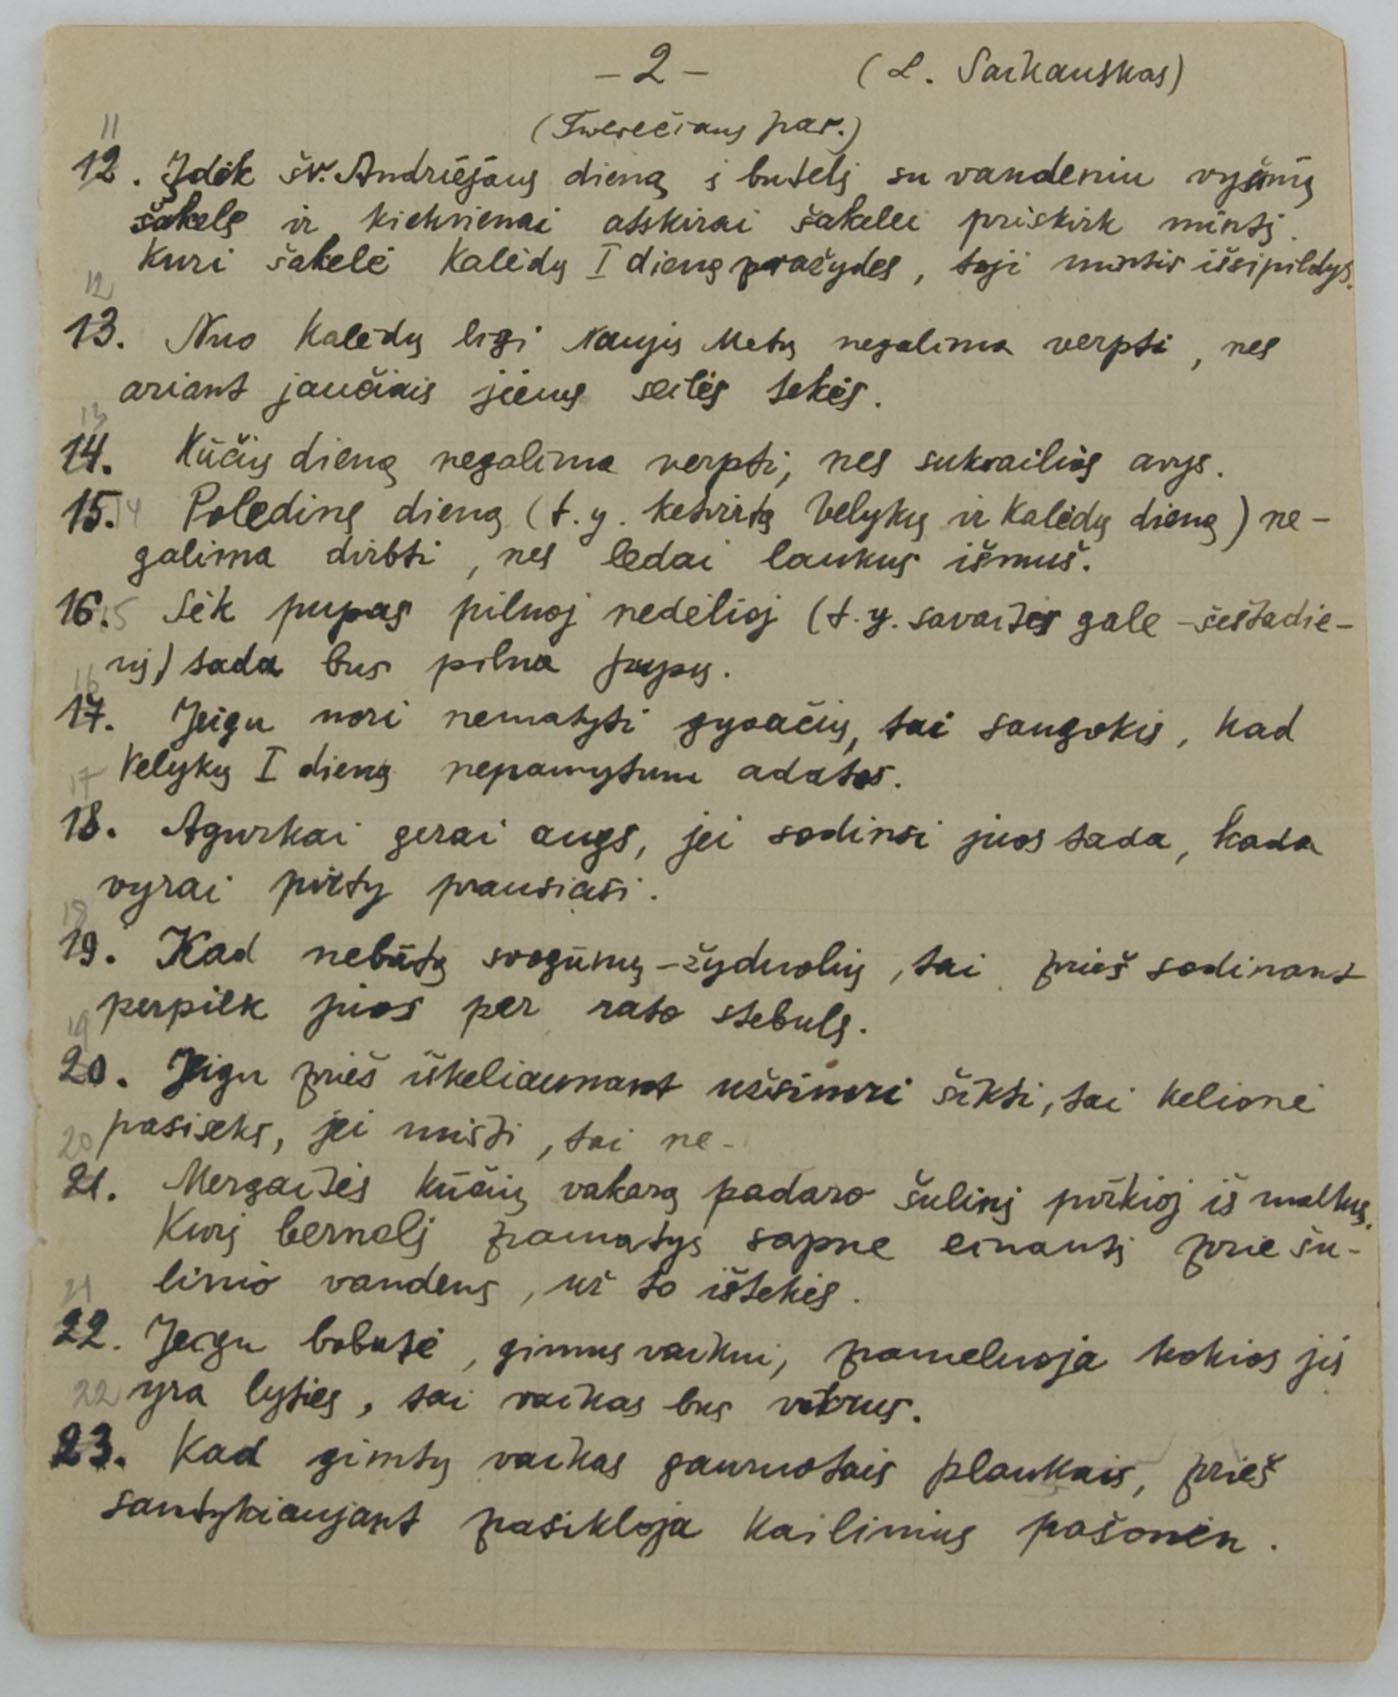 – 2 –
(L. Saikauskas)
(Tverečiaus par.)
11
12. Įdėk šv. Andriėjaus dieną į butelį su vandeniu vyšnių
šakelę ir kiekvienai atskirai šakelei priskirk mintį.
Kuri šakelė Kalėdų I dieną pražydės, toji mintis išsipildys.
12
13. Nuo Kalėdų ligi Naujų Metų negalima verpti, nes
ariant jaučiais jiems seilės tekės.
13
14. Kūčių dieną negalima verpti, nes sukvailiós avys.
15. 14 Poledinę dieną (t. y. ketvirtą Velykų ir Kalėdų dieną) ne-
galima dirbti, nes ledai laukus išmuš.
16. 15 Sėk pupas pilnoj nedėlioj (t. y. savaitės gale – šeštadie-
nį) tada bus pilna pupų.
16
17. Jeigu nori nematyti gyvačių, tai saugokis, kad
Velykų I dieną nepamytum adatos.
17
18. Agurkai gerai augs, jei sodinsi juos tada, kada
vyrai pirty prausiasi.
18
19. Kad nebūtų svogūnų – žyduolių, tai prieš sodinant
perpilk juos per rato stebulę.
19
20. Jeigu prieš iškeliaunant užsinori šikti, tai kelionė
pasiseks, jei mišti, tai ne.
20
21. Mergaitės Kūčių vakarą padaro šulinį pirkioj iš malkų.
Kurį bernelį pamatys sapne einantį prie šu-
linio vandens, už to ištekės.
21
22. Jeigu bobutė, gimus vaikui, pameluoja kokios jis
22 yra lyties, tai vaikas bus vikrus.
23. Kad gimtų vaikas garuotais plaukais, prieš
santykiaujant pasikloja kailinius pašonėn.